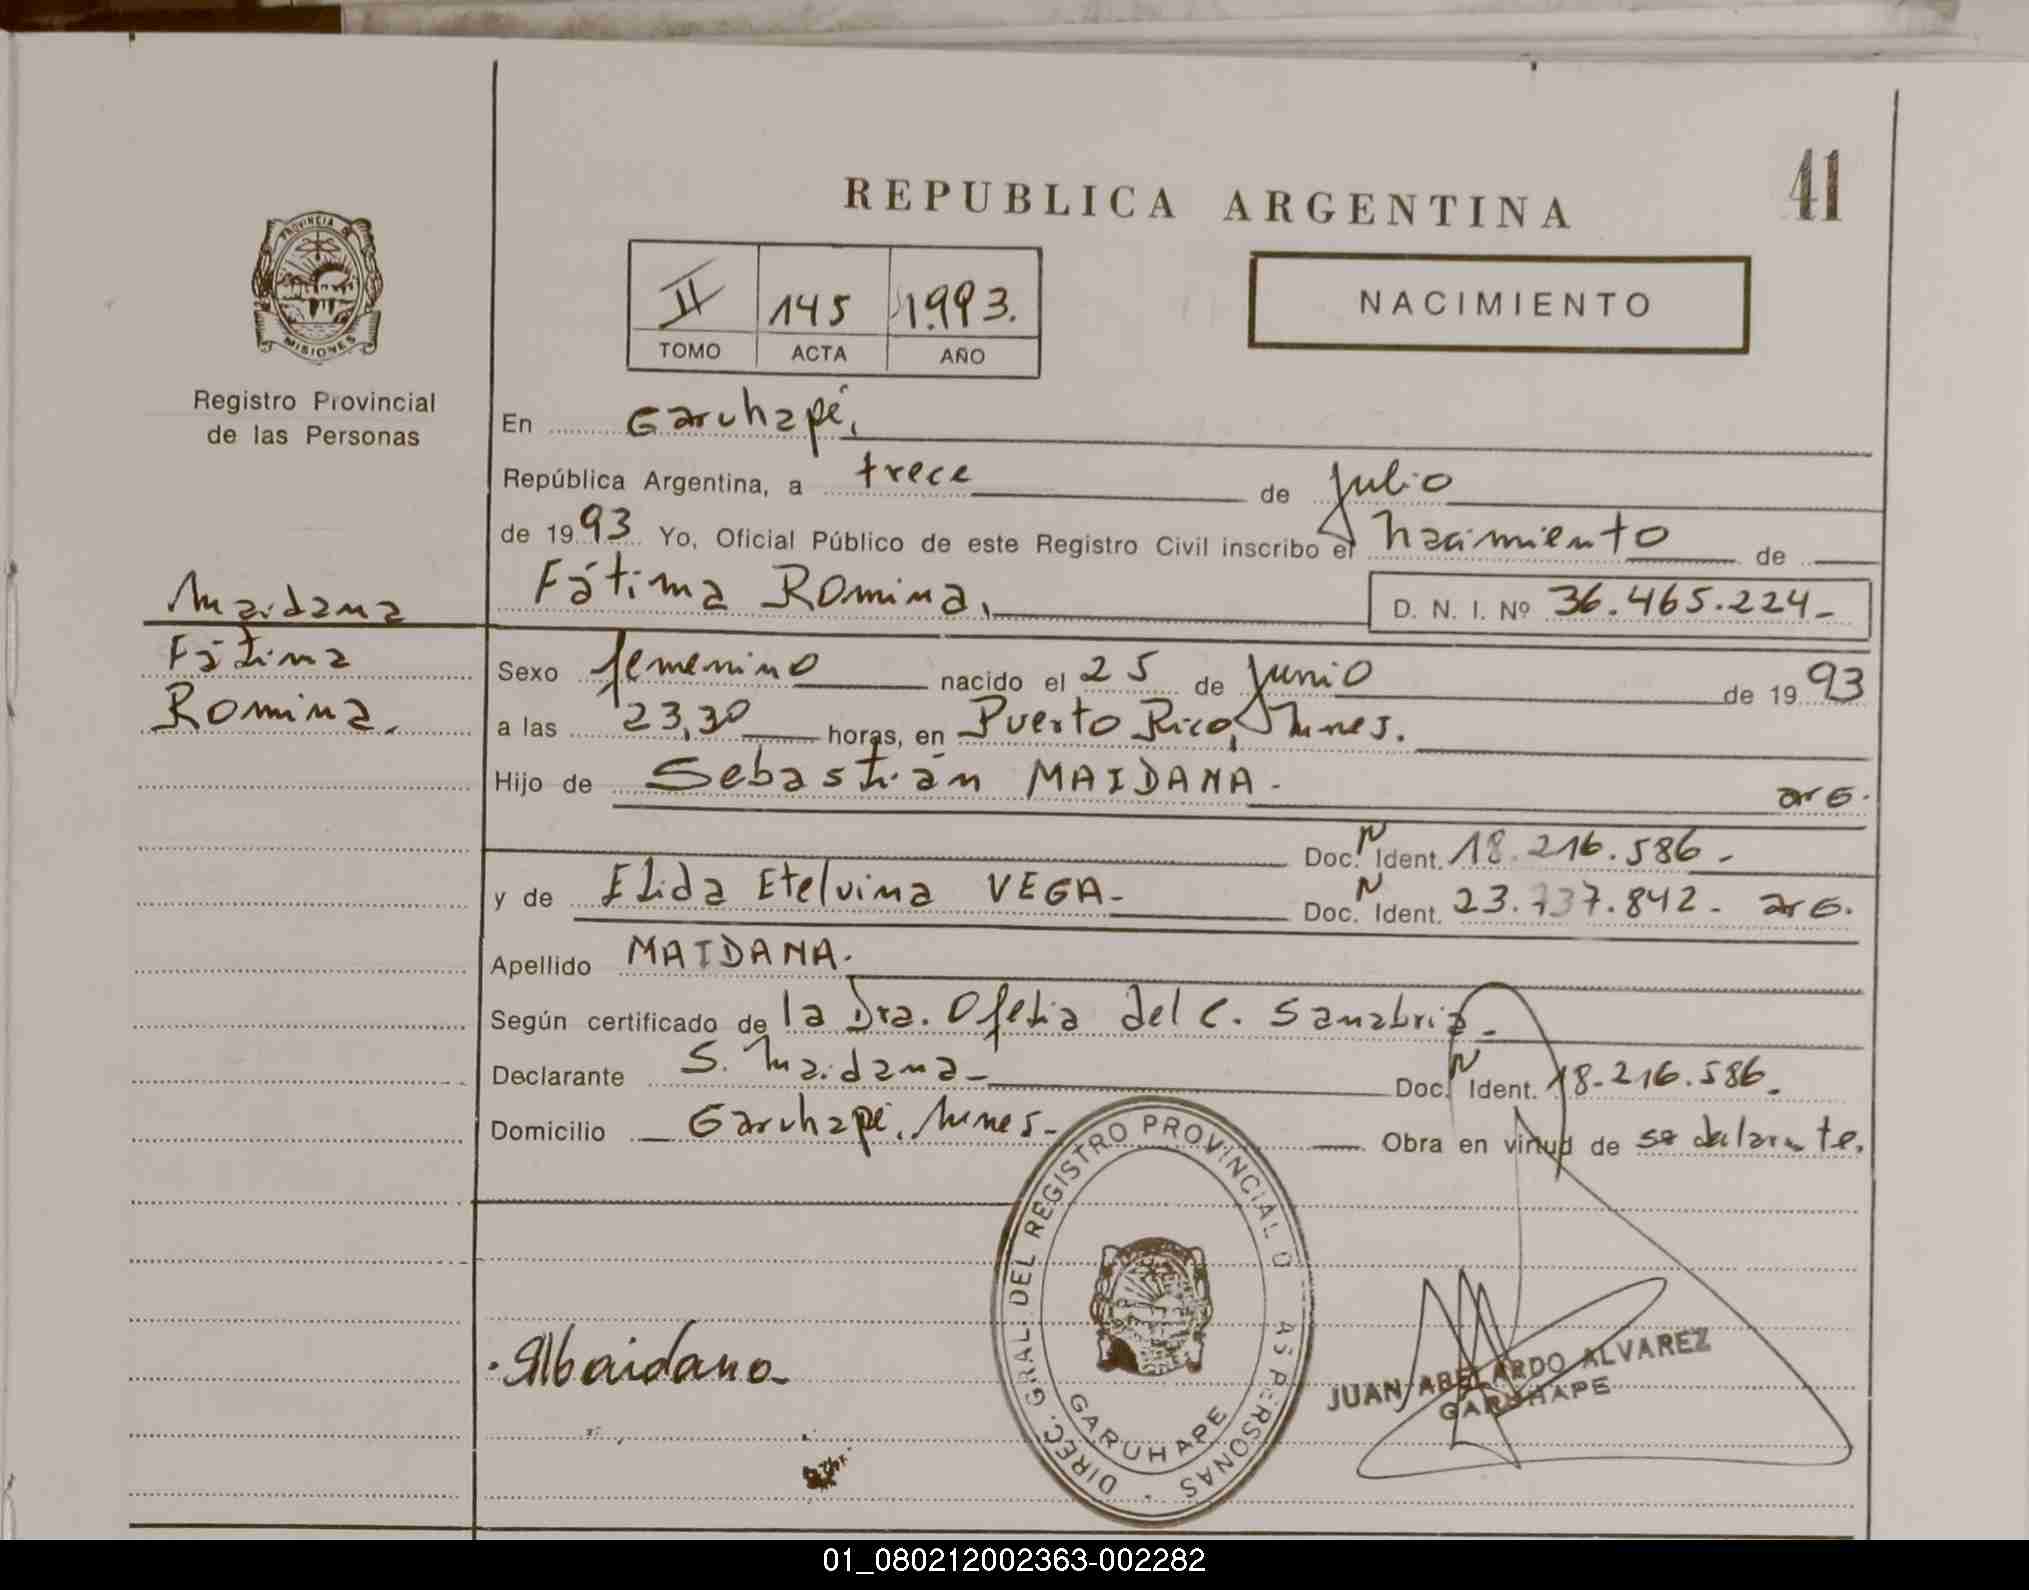 41
REPUBLICA ARGENTINA
PROVINCIA DE
MISIONES
Registro Provincial
de las Personas
II 145 1993.
TOMO ACTA AÑO
NACIMIENTO
En Garuhapé,
República Argentina, a trece de Julio
de 1993 Yo, Oficial Público de este Registro Civil inscribo el nacimiento de
Maidana
Fátima
Romina.
Fátima Romina, D. N. I. Nº 36.465.224-
Sexo femenino nacido el 25 de Junio de 1993
a las 23,30 horas, en Puerto Rico,
Hijo de Sebastián MAIDANA- arg.
Doc. N Ident. 18.216.586-
y de Elida Etelvina VEGA- Doc. N Ident. 23.737.842- arg.
Apellido MAIDANA.
Según certificado de la Dra. Ofelia del C. Sanabria-
Declarante S. Maidana- Doc. N Ident. 18-216.586.
Domicilio Garuhapé, Obra en virtud de
DIREC. GRAL. DEL REGISTRO PROVINCIAL D AS PERSONAS
GARUHAPE
JUAN ABELARDO ALVAREZ
GARUHAPE
01_080212002363-002282